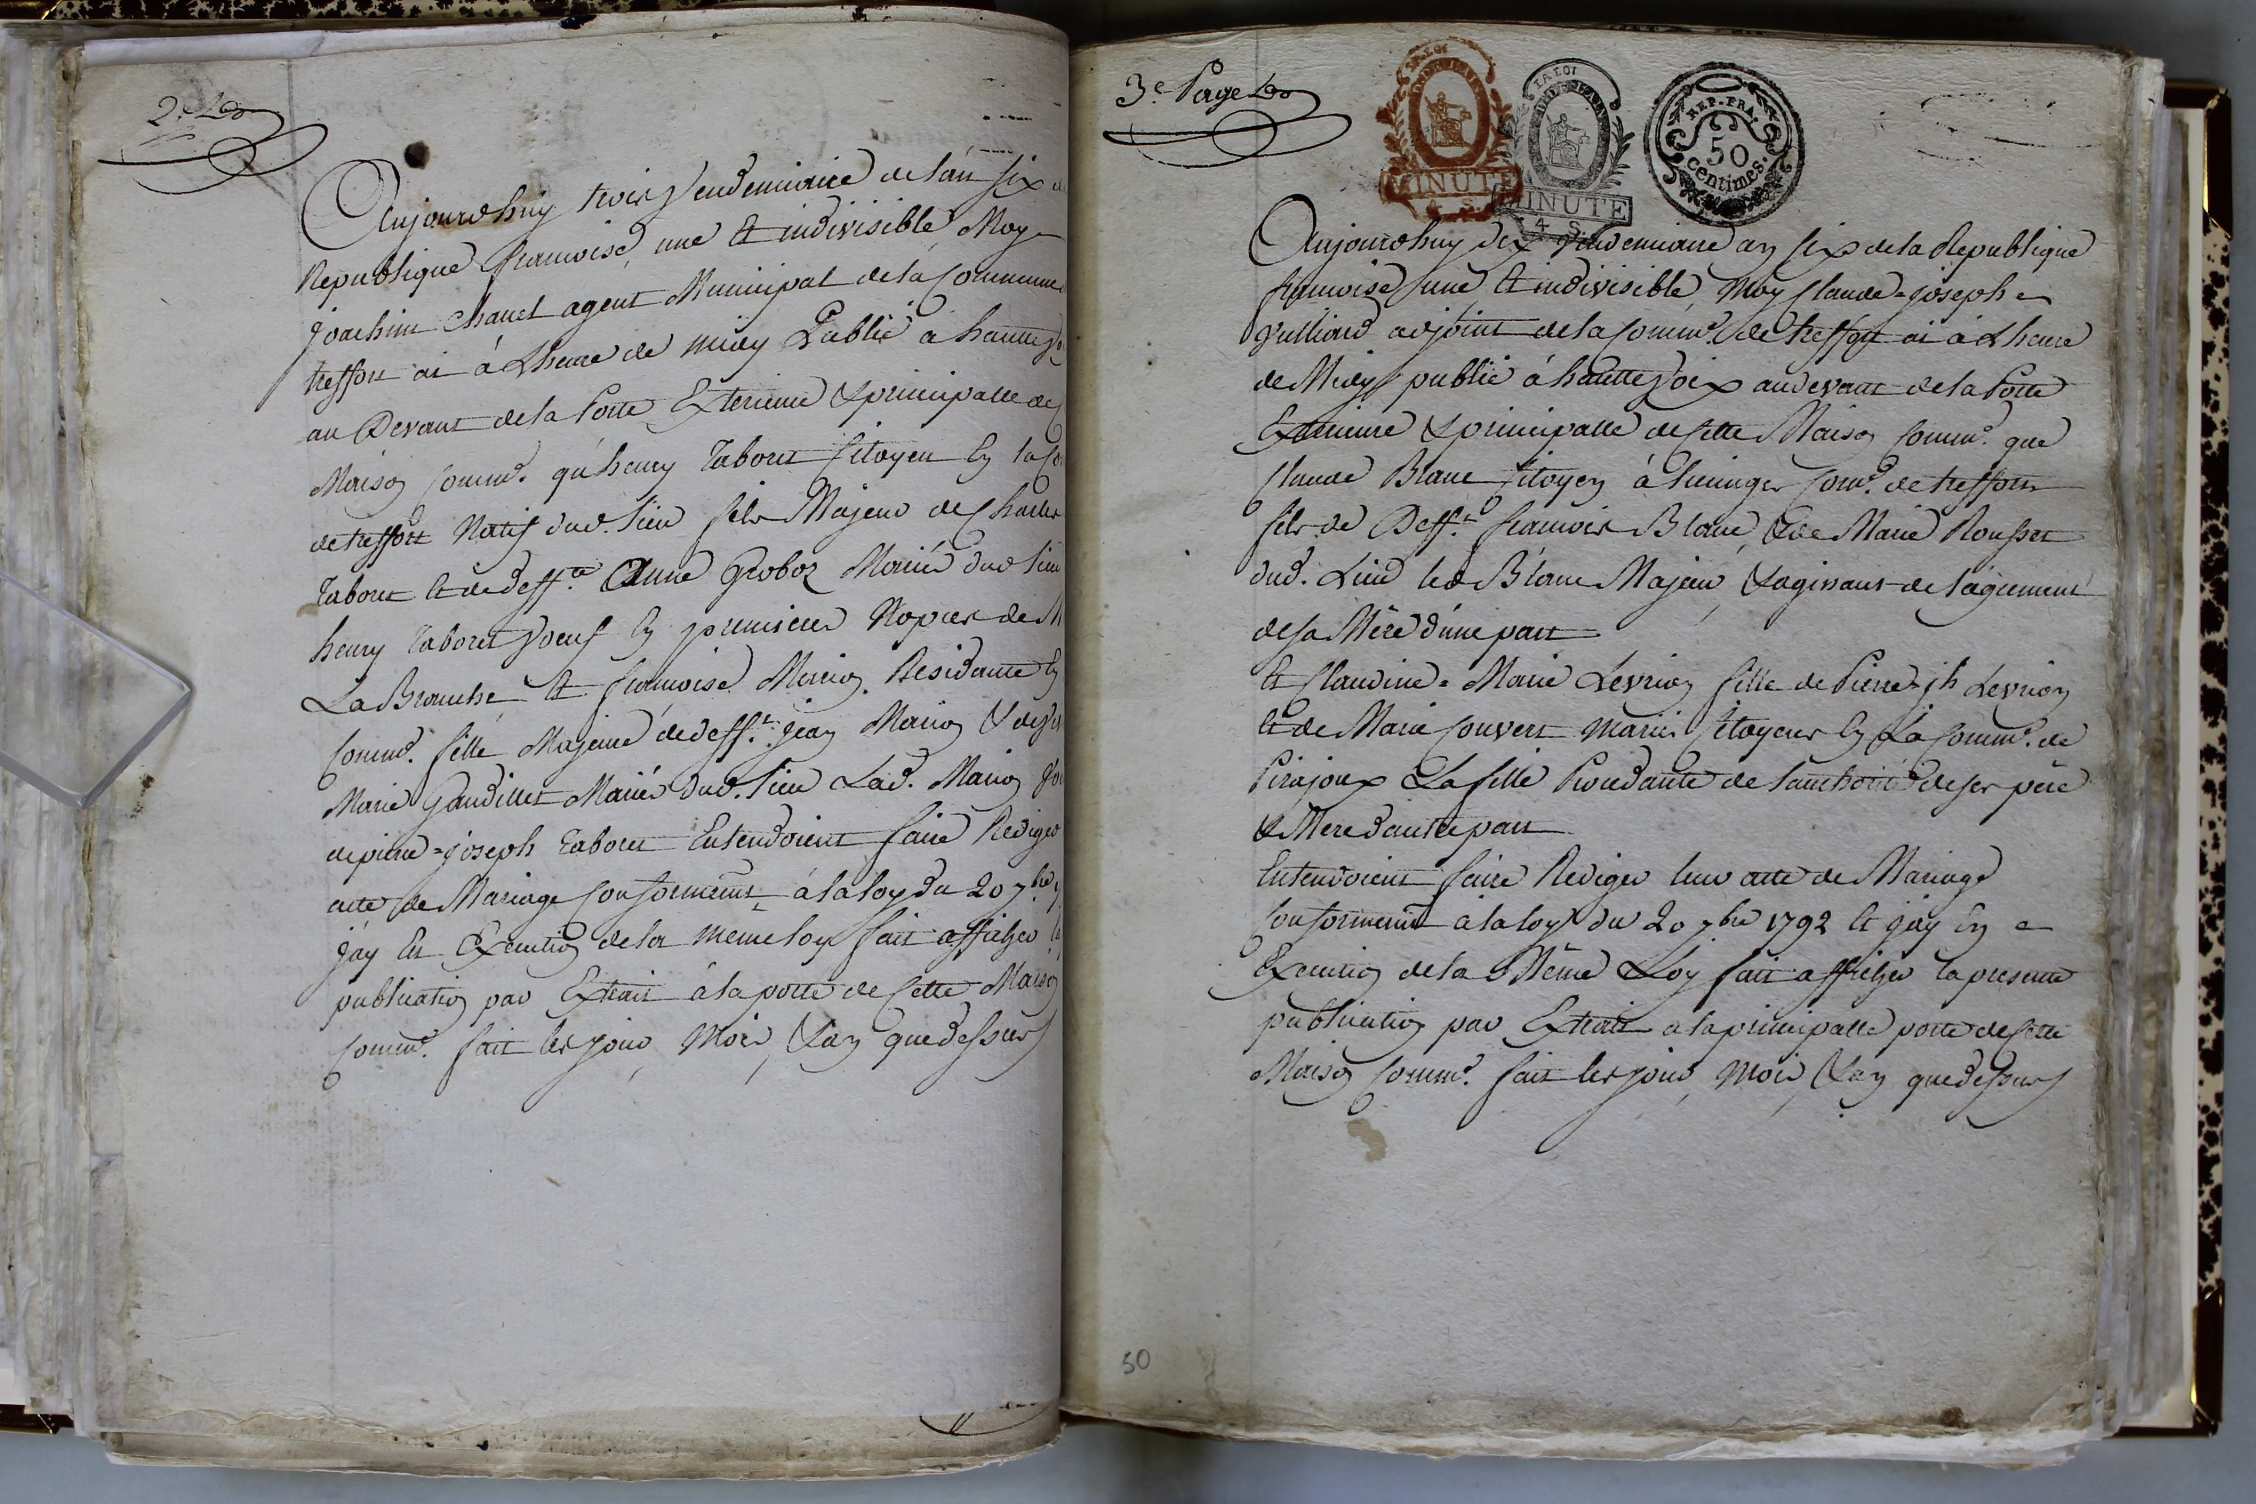 2e
Aujourdhuy trois Vendemiaire de l'an six de
Republique francoise, une et indivisible, Moy
Joachim Chanel agent Municipal de la Commune
treffort ai à Lheure de midy Publié à haute
au Devant de la Porte Exterieure & principalle de
Maison Comm.e qu'henry Taboret Citoyen En la
de treffort Natif dud. Lieu fils Majeur de Charles
Taboret et de deff.te Anne Groboz Mariés dud Lieu
henry Taboret Voeuf En premieres Nopces de
La Branche et francoise Marion Residante En
Comm.e fille Majeure de deff.t Jean Marion &
Marie Gaudillet Mariés dud. Lieu Lad. Marion
de pierre=Joseph Taboret Entendoient faire Rediger
acte de Mariage Conformemt. à la loy du 20 7.bre
J'ay En Execution de la même loy fait afficher
publication par Extrait à la porte de Cette Maison
Comm.e fait les jour, Mois, & an que dessus
3.e Page
LA LOI
MINUTE
4 S.
LA LOI
MINUTE
4 S.
REP. FRA.
50
centimes.
Aujourdhuy dix Vendemiaire an six de la Republique
francoise une et indivisible, Moy Claude=Joseph
Vulliard adjoint de la Comm.e de treffort ai à Lheure
de Midy publié à hautte Voix audevant de la Porte
Exterieure & principalle de Cette Maison Comm.e que
Claude Blanc Citoyen à Com.e de treffort
fils de Deff.t francois Blanc, & de Marie Rousset
dud. Lieu led Blanc Majeur, & agissant de l'agrement
de sa Mère d'une part
et Claudine=Marie Levrion fille de Pierre=jh Levrion
et de Marie Convert mariés Citoyens En La Comm.e de
Pirajoux La fille Proudante de l'authorité de ses père
& Mere d'autre part
Entendoient faire Rediger leur acte de Mariage
Conformemt à la loy du 20 7bre 1792 et j'ay En
Execution de la Même Loy fait afficher la presente
publication par Extrait a la principalle porte de Cette
Maison Comm.e fait les jour, Mois, & an que dessus
50